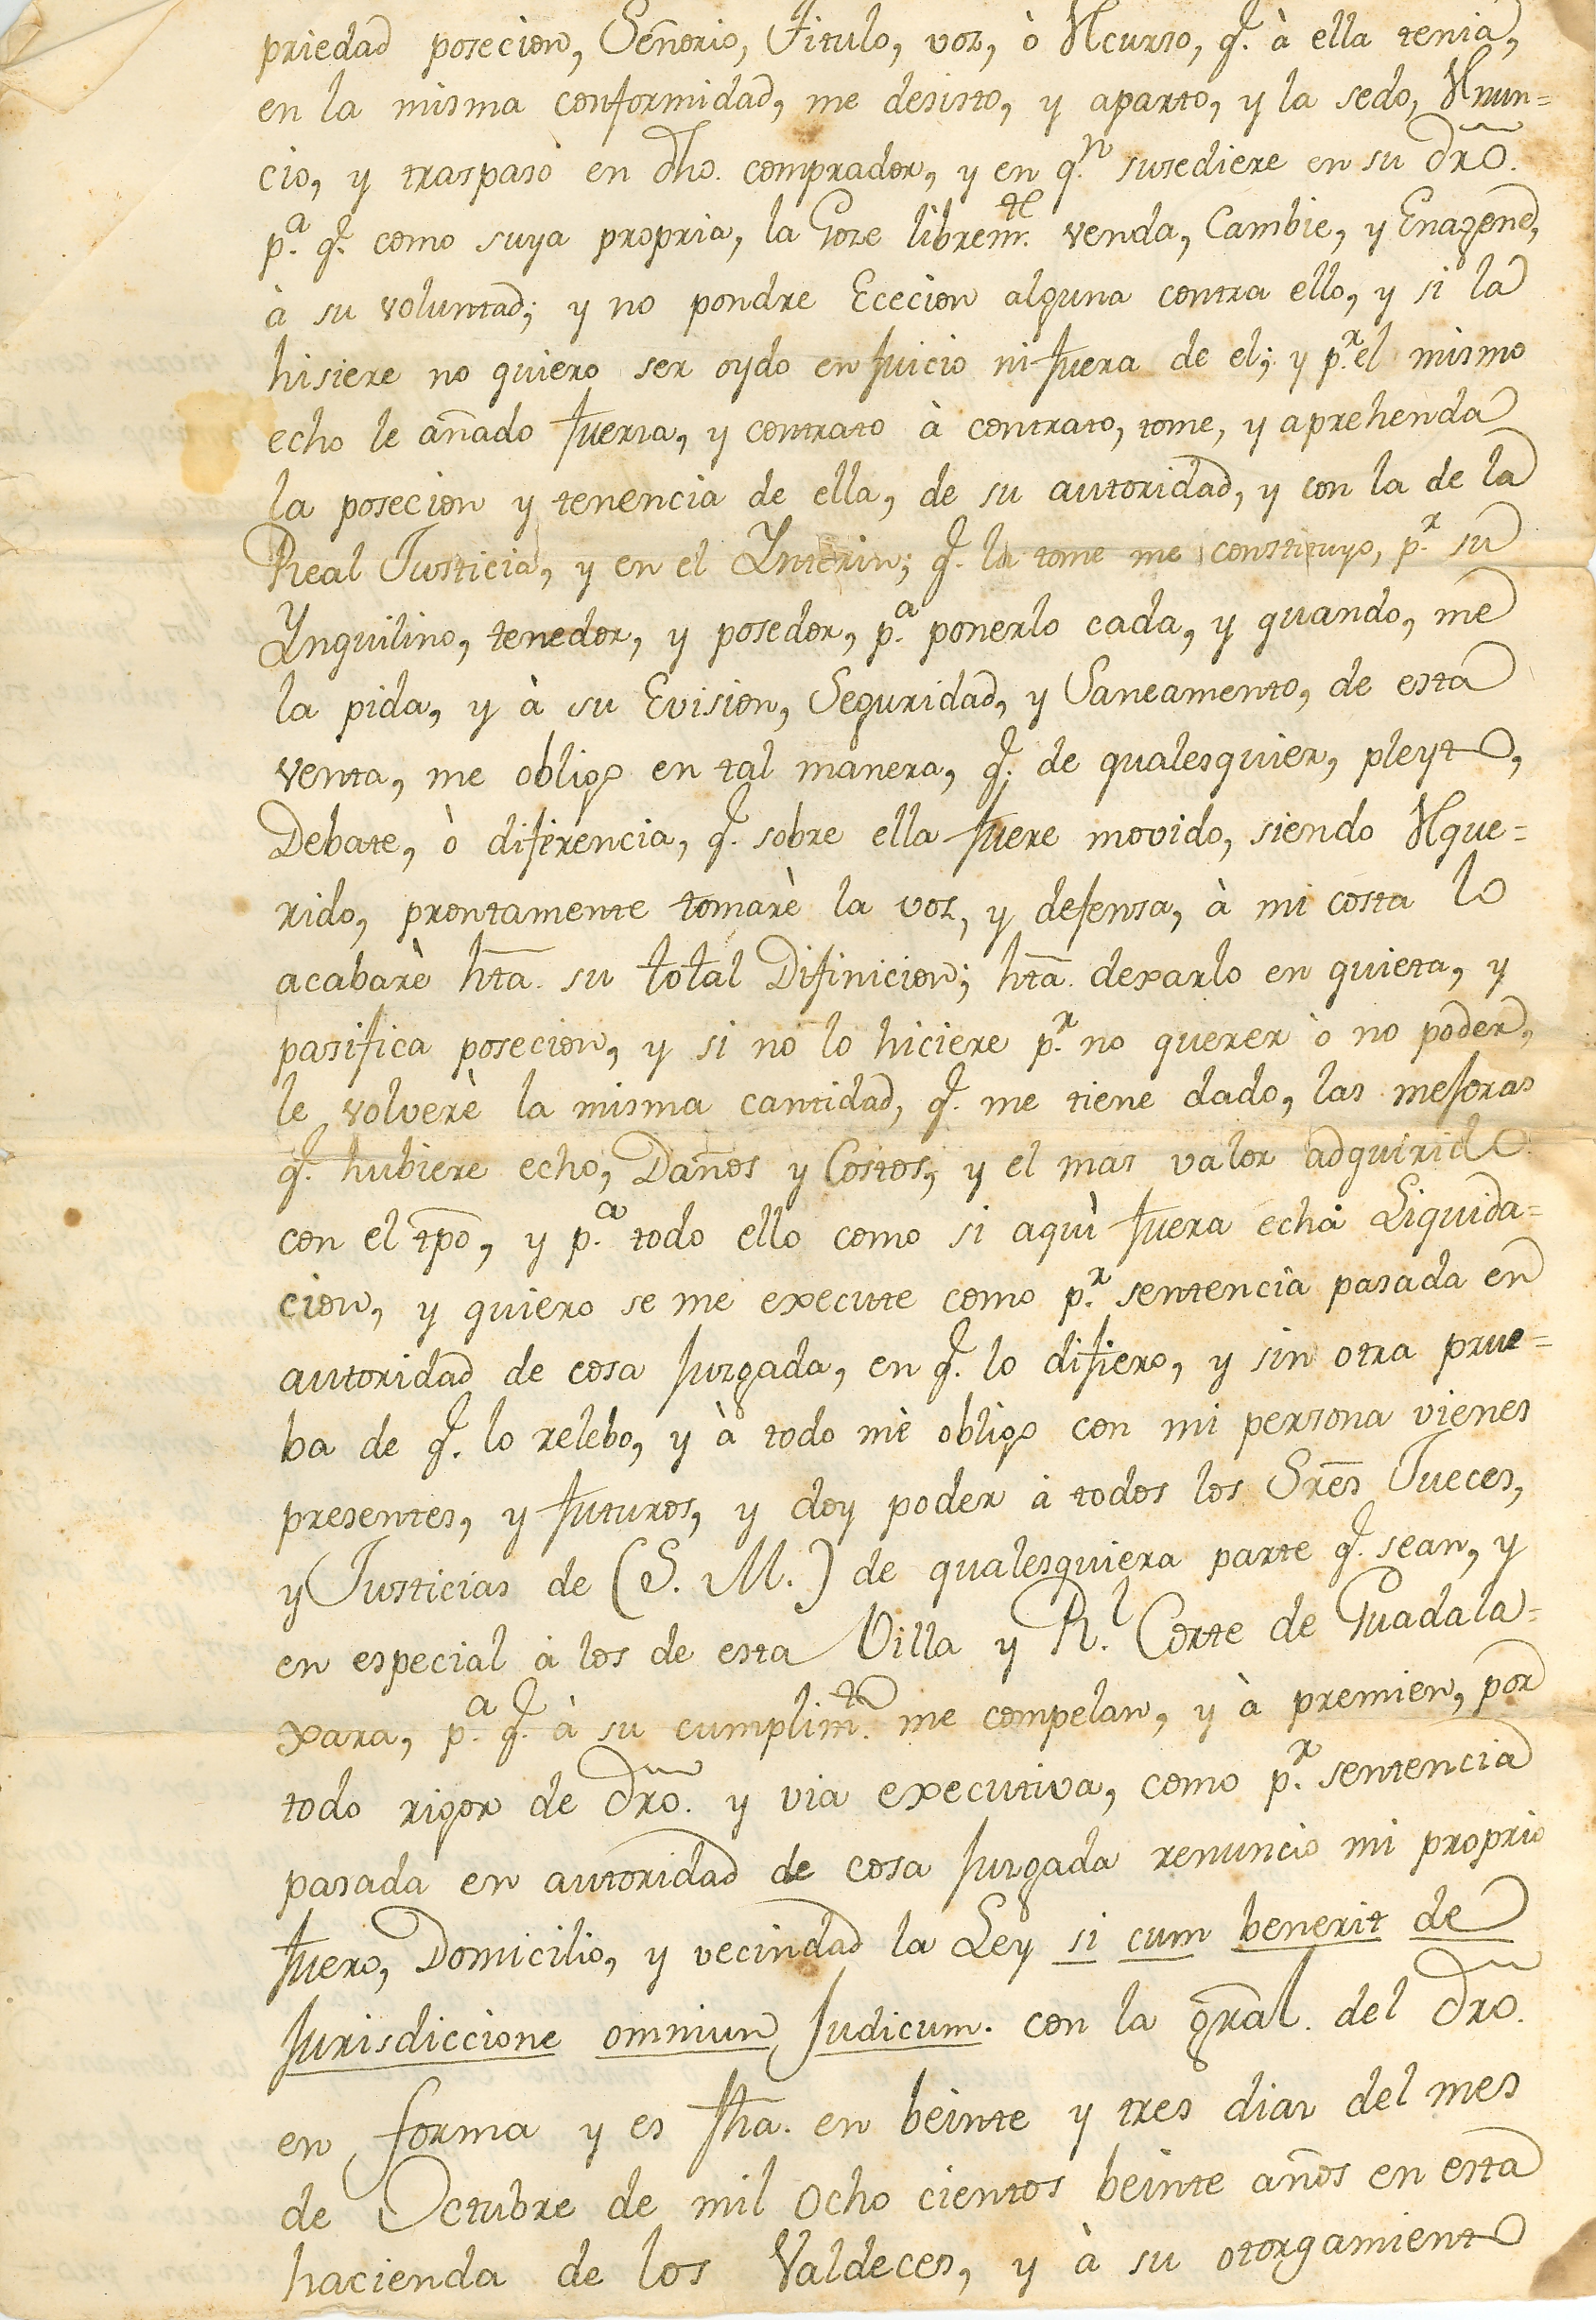 priedad posecion, Señorio, Titulo, vos, ò Recurso, q.e à ella tenia,
en la misma conformidad, me desisto, y aparto, y la sedo, Renun=
cio, y traspaso en dho. comprador, y en q.n susediere en su dro.
p.a q.e como suya propria, la Gose librem.te venda, Cambie, y Enagene,
à su voluntad; y no pondre Ececion alguna contra ello, y si la
hisiere no quiero ser oydo en juicio ni fuera de el; y p.r el mismo
echo le añado fuersa, y contrato à contrato, tome, y aprehenda
la posecion y tenencia de ella, de su autoridad, y con la de la
Real Justicia, y en el Ynterin; q.e la tome me constituyo, p.r su
Ynquilino, tenedor, y posedor, p.a ponerlo cada, y quando, me
la pida, y à su Evision, Seguridad, y Saneamento, de esta
venta, me obligo en tal manera, q.e de qualesquier, pleyto,
Debate, ò diferencia, q.e sobre ella fuere movido, siendo Reque=
rido, prontamente tomarè la vos, y defensa, à mi costa lo
acabarè hta. su total Difinicion; hta. dexarlo en quieta, y
pasifica posecion, y si no lo hiciere p.r no querer ò no poder,
le volverè la misma cantidad, q.e me tiene dado, las mejoras
q.e hubiere echo, Daños y Costos, y el mas valor adquirido
con el tpo, y p.a todo ello como si aquì fuera echa Liquida=
cion, y quiero se me execute como p.r sentencia pasada en
autoridad de cosa jusgada, en q.e lo difiero, y sin otra prue=
ba de q.e lo relebo, y à todo me obligo con mi persona vienes
presentes, y futuros, y doy poder à todos los Sres Jueces,
y Justicias de (S. M.) de qualesquiera parte q.e sean, y
en especial à los de esta Villa y R.l Corte de Guadala=
xara, p.a q.e à su cumplim.to me compelan, y à premien, por
todo rigor de dro. y via executiva, como p.r sentencia
pasada en autoridad de cosa jusgada renuncio mi proprio
fuero, Domicilio, y vecindad la Ley si cum benerit de
jurisdiccione omniun judicum. con la gral. del dro.
en forma y es fha. en beinte y tres dias del mes
de Octubre de mil ocho cientos beinte años en esta
hacienda de los Valdeces, y à su otorgamiento